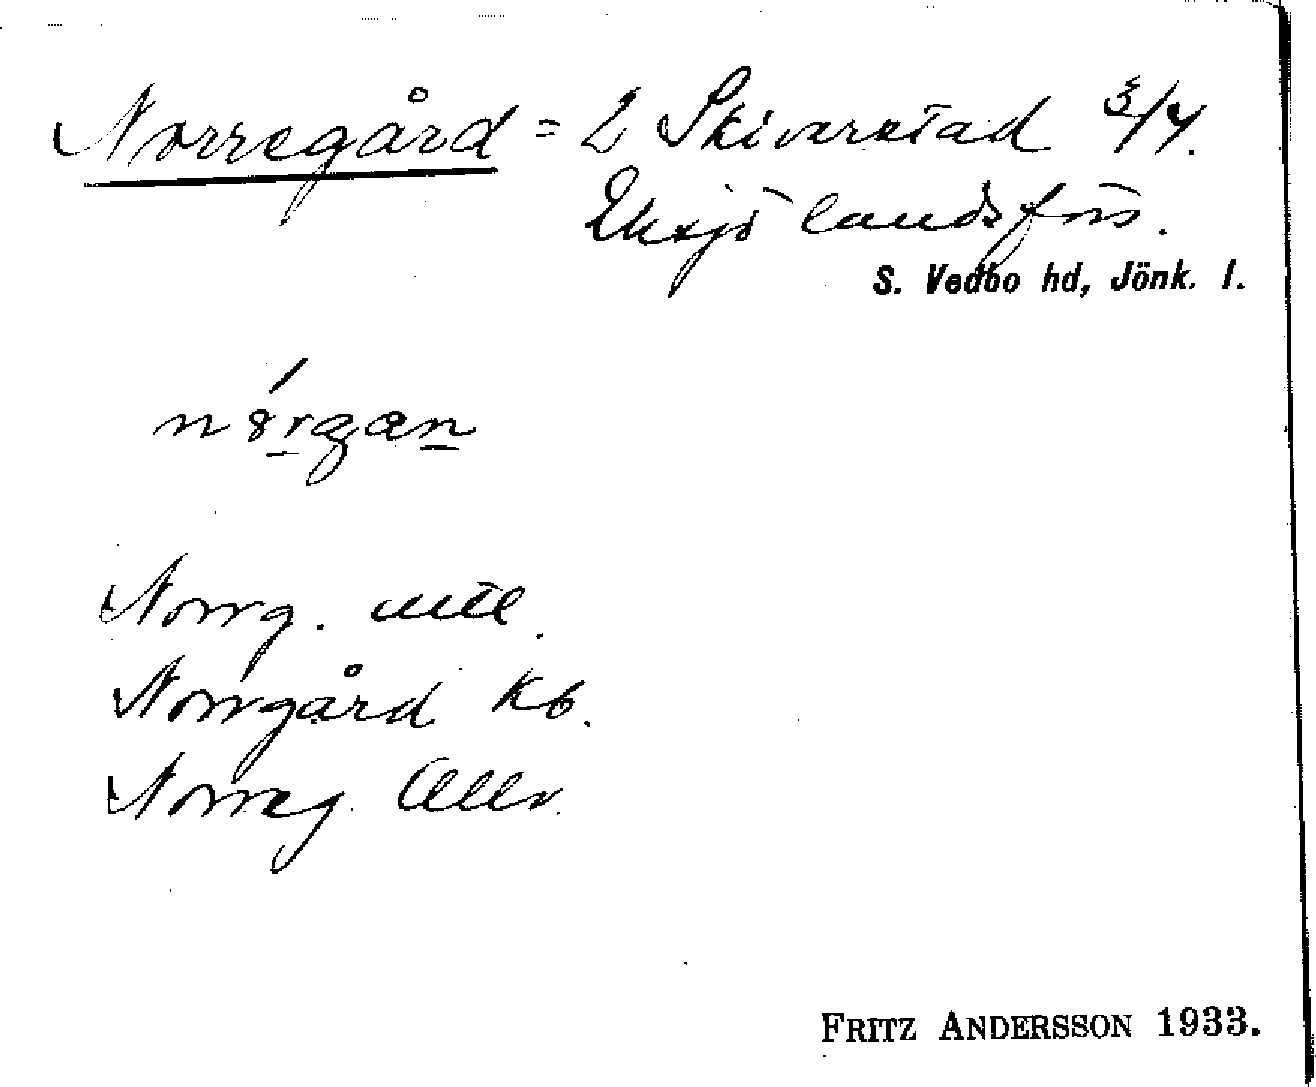 Norregård = 2 Skiverstad 3/4.
Eksjö landsförs.
S. Vedbo hd, Jönk. l.
Norrg. utt.
Norrgård Kb.
Norreg. Allm.
FRITZ ANDERSSON 1933.